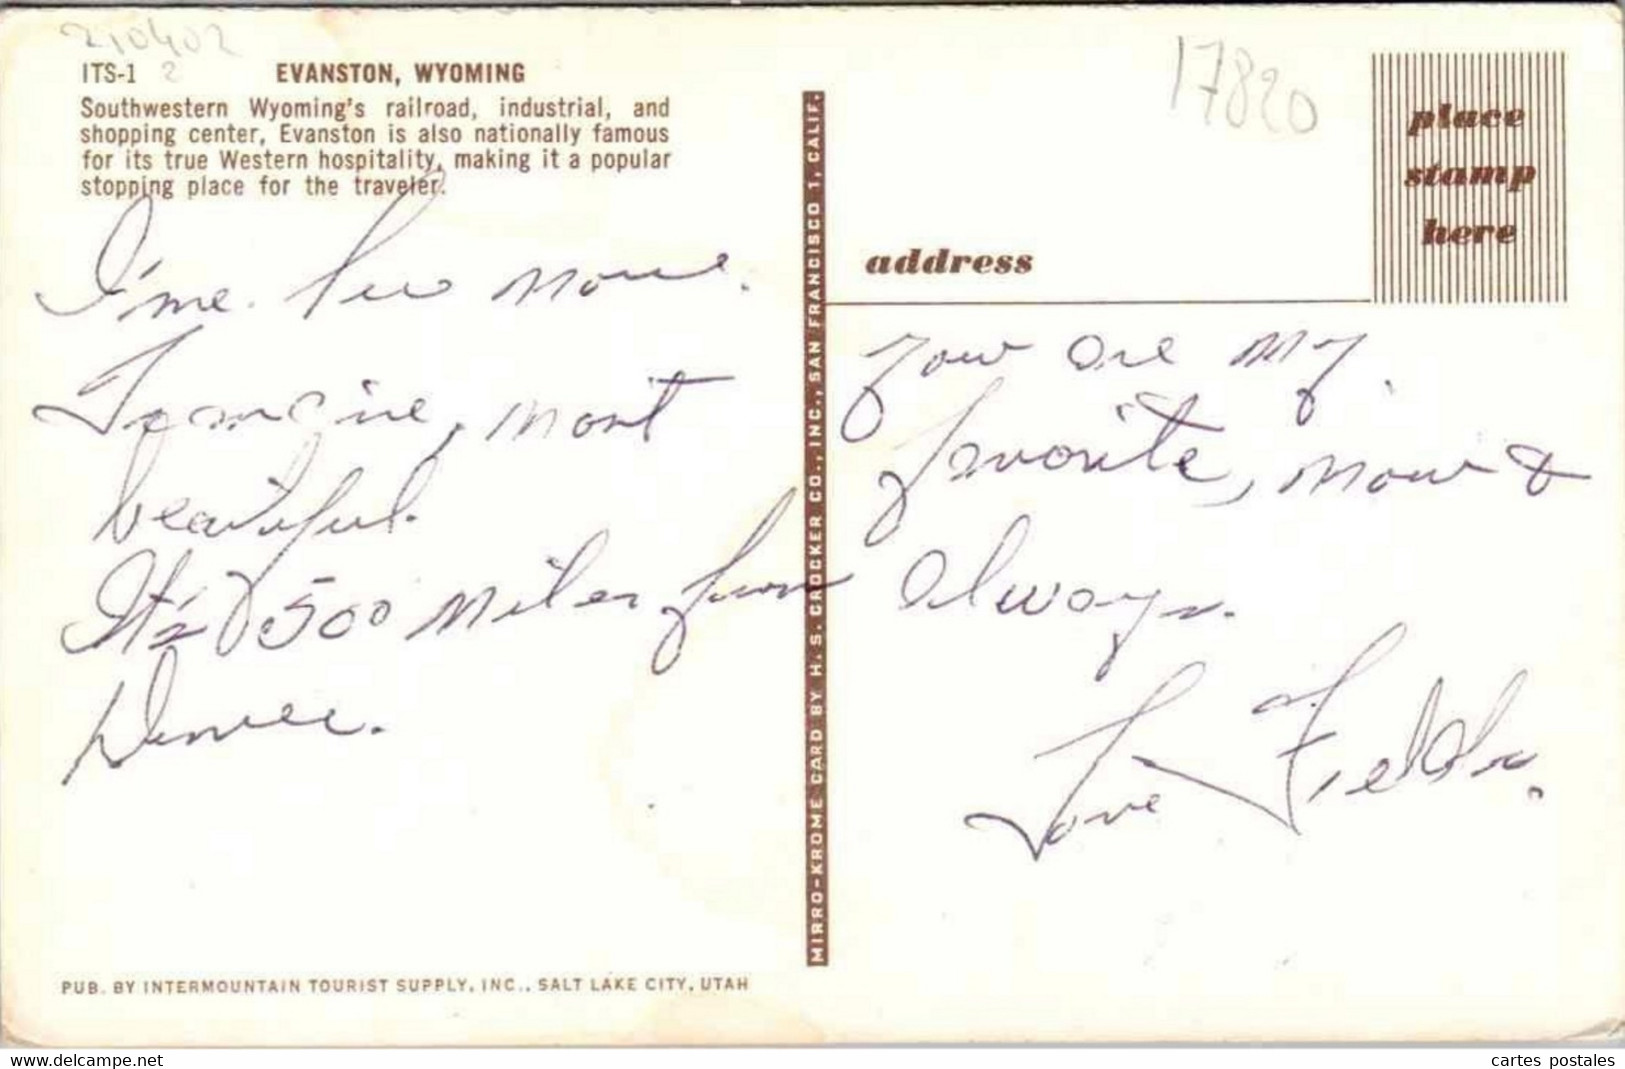 210402
ITS-1 2 EVANSTON, WYOMING
Southwestern Wyoming's railroad, industrial, and
shopping center, Evanston is also nationally famous
for its true Western hospitality, making it a popular
stopping place for the traveler.
I'me. here now.
most
beautiful.
It's 500 Miles from
Denver.
PUB. BY INTERMOUNTAIN TOURIST SUPPLY, INC., SALT LAKE CITY, UTAH
MIRRO-KROME CARD BY H. S. CROCKER CO., INC., SAN FRANCISCO 1, CALIF.
17820
place
stamp
here
address
You are My
favorite, now &
always.
Love
www.delcampe.net
cartes postales